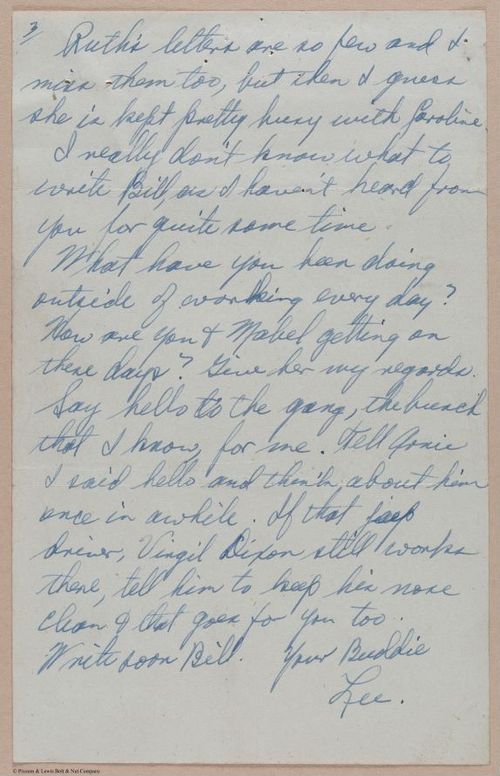 3/
Ruth's letters are so few and I
miss them too, but then I guess
she is kept pretty busy with Caroline.
I really don't know what to
write Bill, as I haven't heard from
you for quite some time.
What have you been doing
outside of working every day?
How are you & Mabel getting on
these days? Give her my regards.
Say hello to the gang, the bunch
that I know, for me. Tell
I said hello and think about him
once in awhile. If that jeep
driver, Virgil Dixon still works
there, tell him to keep his nose
clean & that goes for you too.
Write soon Bill. Your Buddie
Lee.
© Pioneer & Lewis Bolt & Nut Company